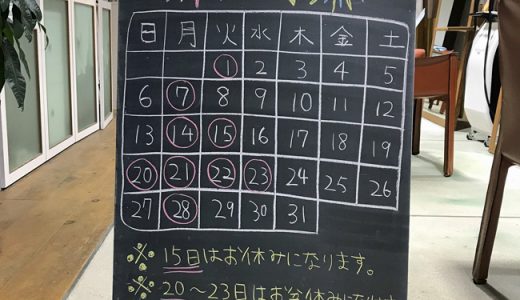 日 月 火 水 木 金 土
1 2 3 4 5
6 7 8 9 10 11 12
13 14 15 16 17 18 19
20 21 22 23 24 25 26
27 28 29 30 31
※ 15日はお休みになります。
※ 20〜23日はお盆休みになり